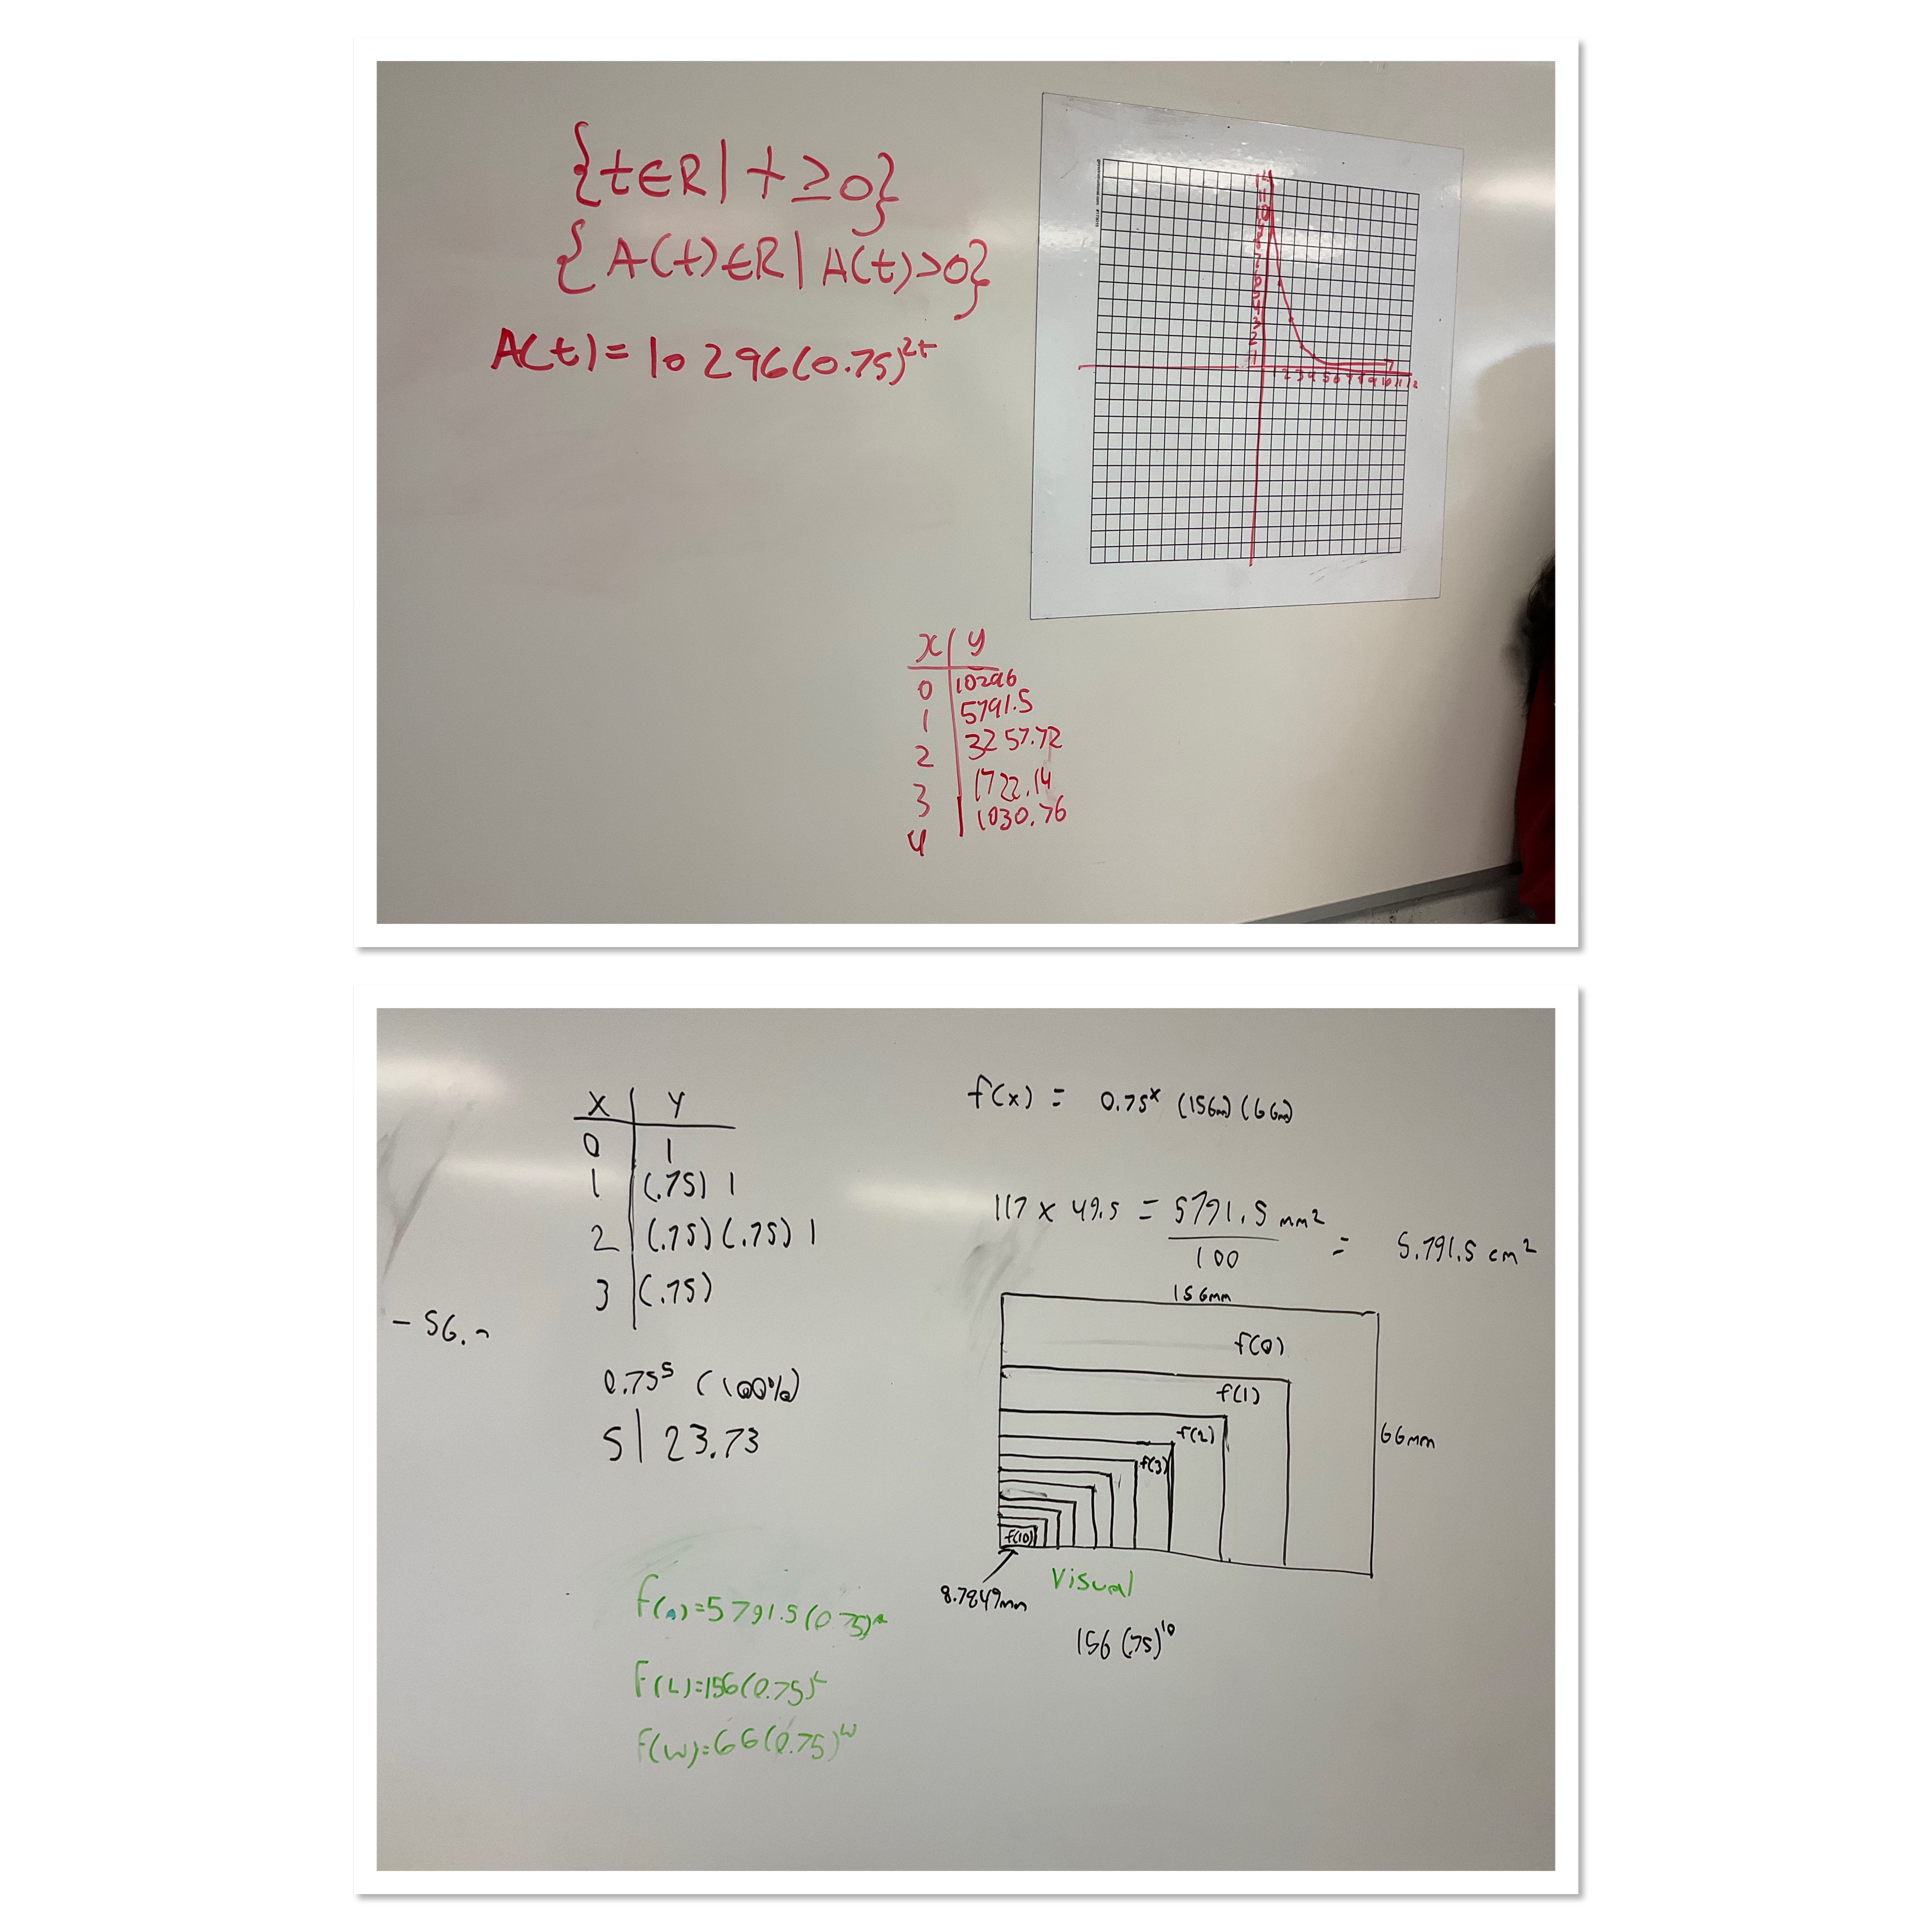 {t∈R | t ≥ 0}
{A(t)∈R | A(t)>0}
A(t) = 10 296(0.75)^2t
12
11
10
9
8
7
6
5
4
3
2
1
1 2 3 4 5 6 7 8 9 10 11 12
x | y
0 | 10296
1 | 5791.5
2 | 3257.72
3 | 1722.14
4 | 1030.76
f(x) = 0.75^x (156mm) (66mm)
x | y
0 | 1
1 | (.75) 1
2 | (.75)(.75) 1
3 | (.75)
117 x 49.5 = 5791.5 mm² / 100 = 5.791.5 cm²
- 56.
0.75^5 (100%)
5 | 23.73
156mm
f(0)
f(1)
f(2)
f(3)
f(10)
66mm
8.7849mm
Visual
156 (.75)^10
f(a)=5791.5(0.75)^a
F(L)=156(0.75)^L
f(w)=66(0.75)^w